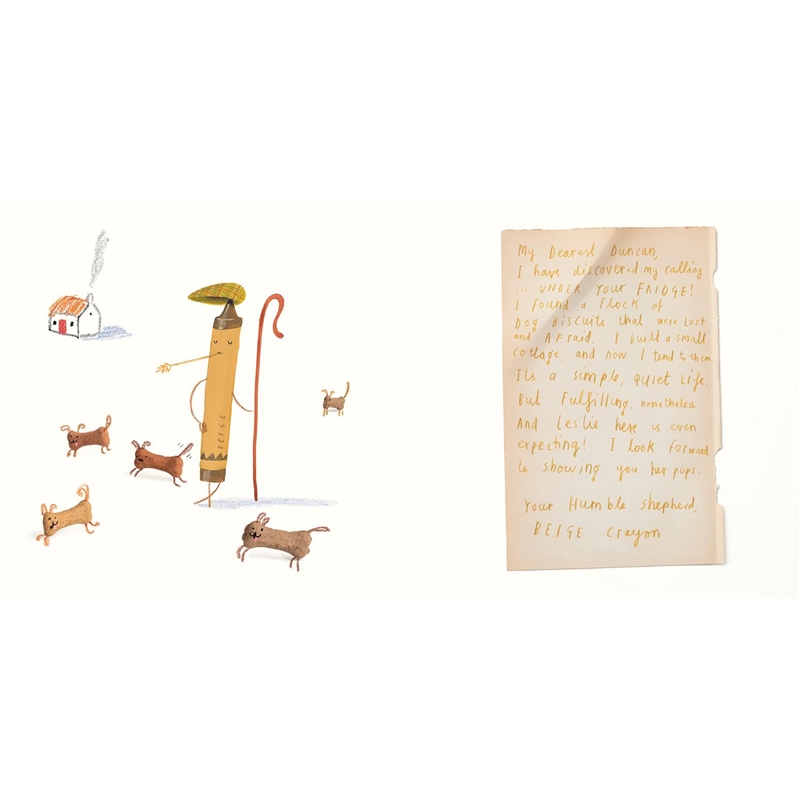 BEIGE
My Dearest Duncan,
I have discovered my calling
... UNDER YOUR FRIDGE!
I found a Flock of
Dog Biscuits that were Lost
and Afraid. I built a small
cottage, and now I tend to them.
Its a simple, quiet Life.
But Fulfilling, nonetheless.
And Leslie here is even
expecting! I look forward
to showing you her pups.
Your Humble shepherd,
BEIGE crayon